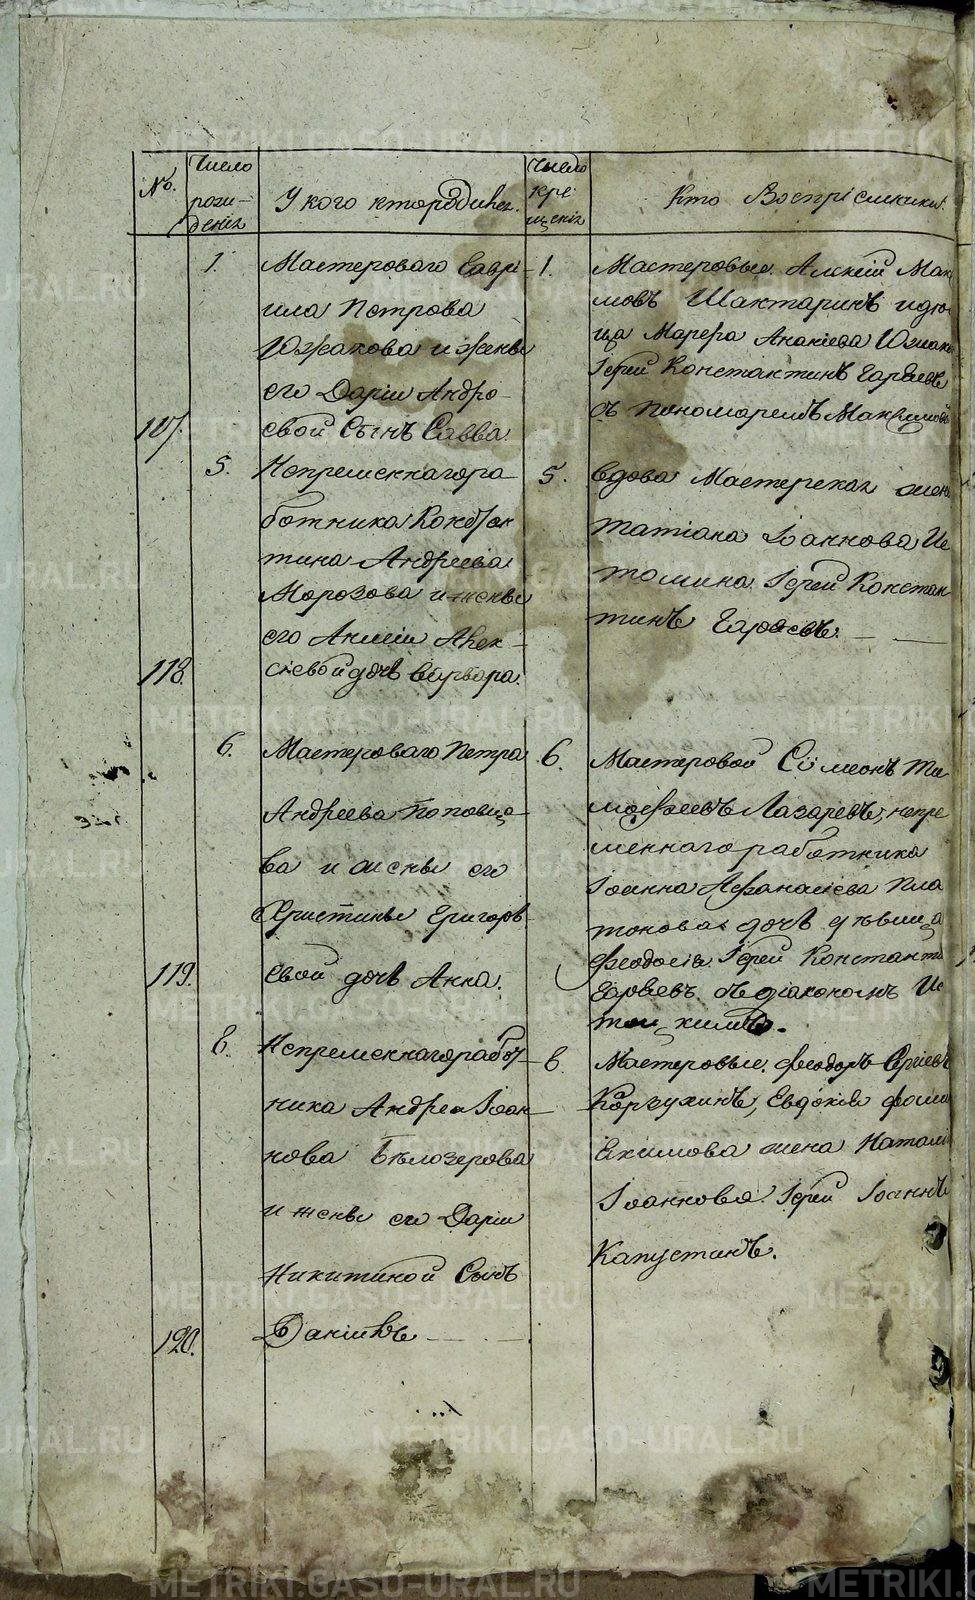 №.
Число
рожи-
денія
У кого кто родился.
Число
кре
щенія
Кто Воспріемники.
1.
Мастероваго Гаврі-
ила Петрова
Южакова и жены
его Дарьи Андре-
евой Сынъ Савва.
117.
1.
Мастеровые Алексій Мак
мовъ Шактаринъ и дев
ца Марѳа Ананіева Южако
Іерей Константинъ
съ пономаремъ Максимовъ
5.
Непременнаго ра-
ботника Констан
тина Андреева
Морозова и жены
его Алек-
сіевой дочь Варвара.
118.
5.
Вдова Мастерская жена
татіана Іоаннова Ис
томина. Іерей Констан
тинъ
6.
Мастероваго Петра
Андреева Поповце-
ва и жены его
Христины Григорь-
евой дочь Анна.
119.
6.
Мастеровой Симеонъ Ти
моѳеевъ Лазаревъ, непре
меннаго работника
Іоанна Афанасіева Пла
тонова дочь дѣвица
Феодосія. Іерей Константи
съ діакономъ Ис
8.
Непременнаго работ-
ника Андрея Іоан-
нова Бѣлозерова
и жены его Дарьи
Никитиной Сынъ
Даніилъ
120.
8.
Мастеровые, феодоръ Сергіевъ
Корзухинъ, Евдоким
Екимова жена Наталі
Іоаннова Іерей Іоаннъ
Капустинъ.
METRIKI.GASO-URAL.RU